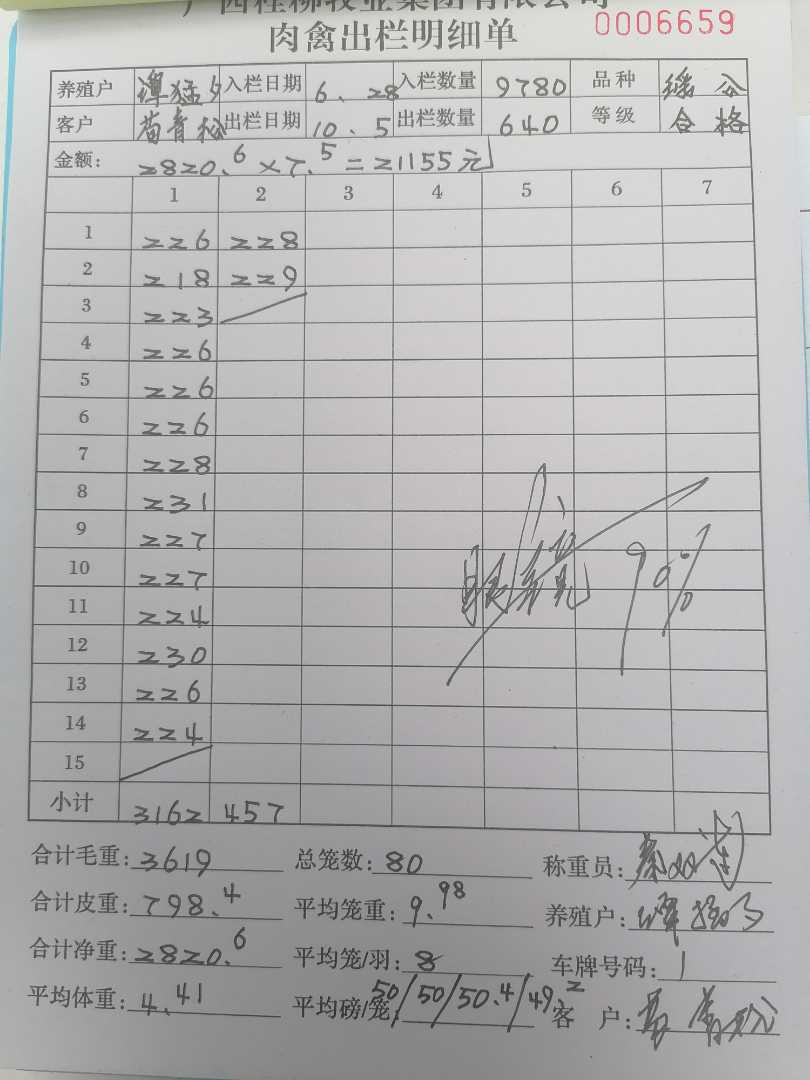 广西桂柳牧业集团有限公司
肉禽出栏明细单 0006659
养殖户 入栏日期 6、28 入栏数量 9780 品种 瑶公
客户 出栏日期 10、5 出栏数量 640 等级 合格
金额: 2820.6×7.5=21155元
1 2 3 4 5 6 7
1 226 228
2 218 229
3 223
4 226
5 226
6 226
7 228
8 231
9 227
10 227
11 224
12 230
13 226
14 224
15
90%
小计 3162 457
合计毛重: 3619 总笼数: 80 称重员:
合计皮重: 798.4 平均笼重: 9.98 养殖户:
合计净重: 2820.6 平均笼/羽: 8 车牌号码:
平均体重: 4.41 平均磅/笼: 50/50/50.4/49.2 客 户: